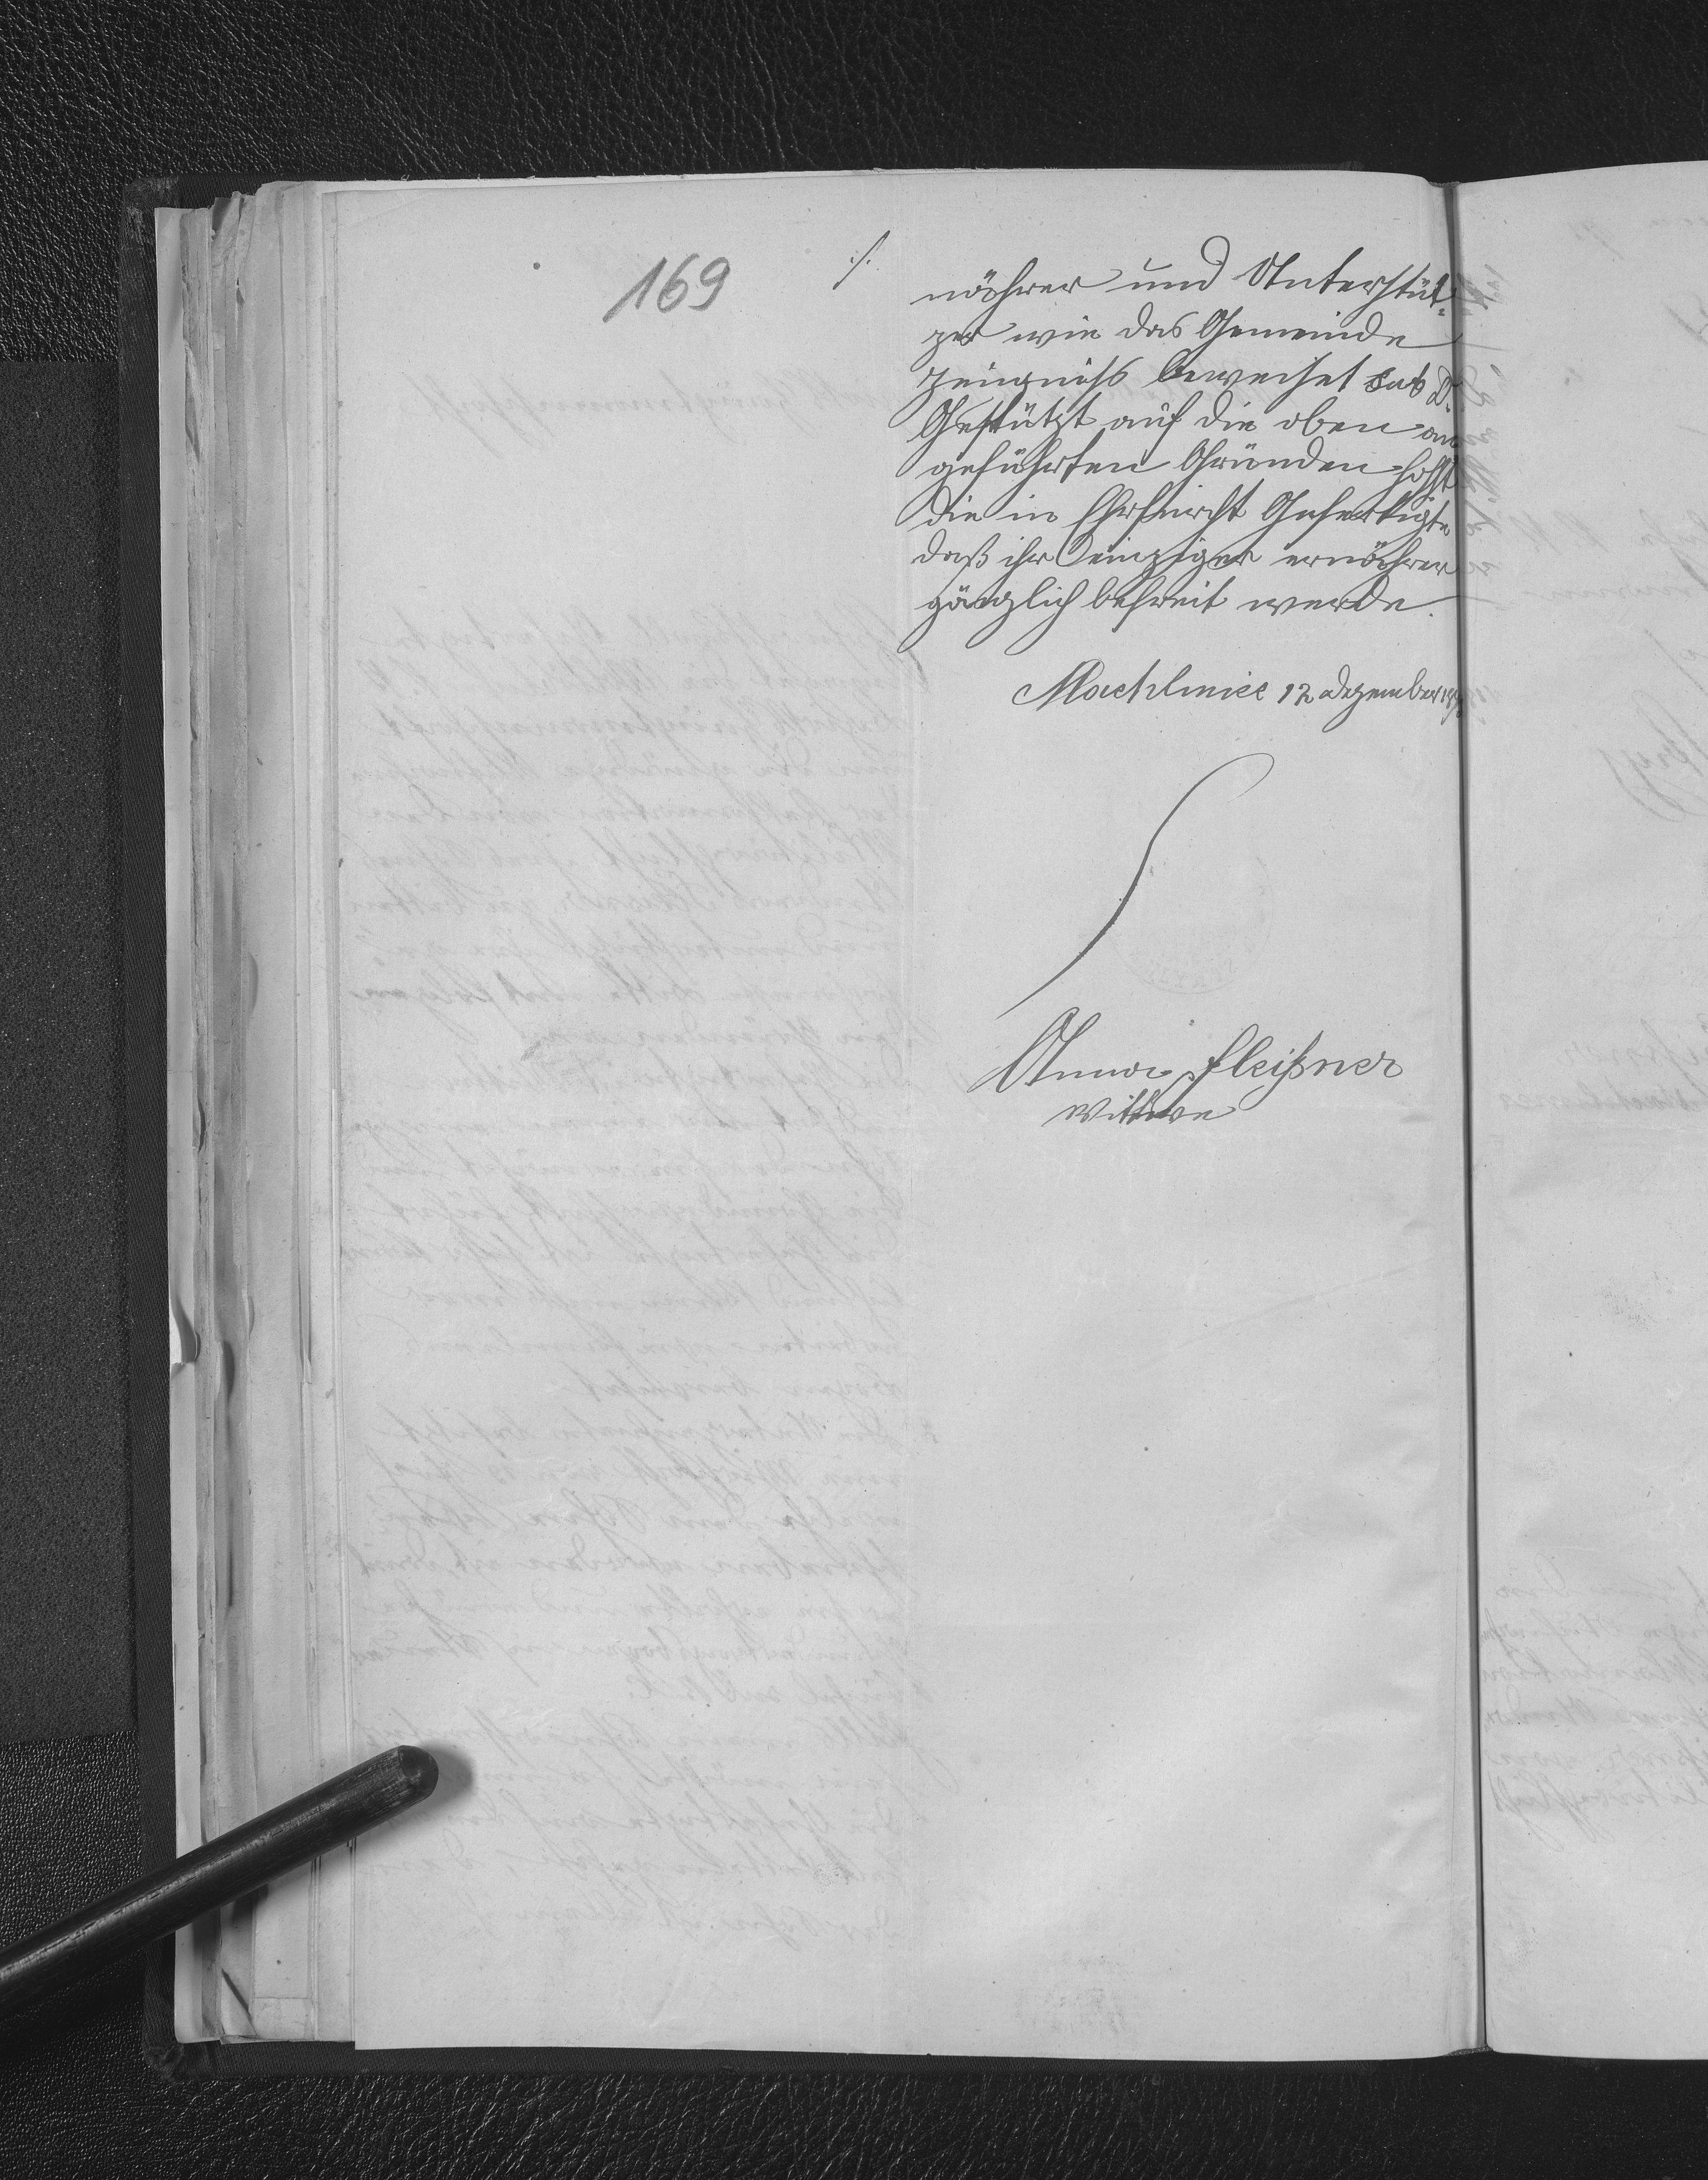 169
./.
nährer und Unterstüt-
zer wie das Gemeinde
zeugniss beweiset sub D.
Gestützt auf die oben an
geführten Gründen hofft
die in Ehrfurcht Gefertigte
daß ihr einziger ernährer
gänzlich befreit werde.
Machlmies 12 dezember
Anna Fleißner
Wittwe